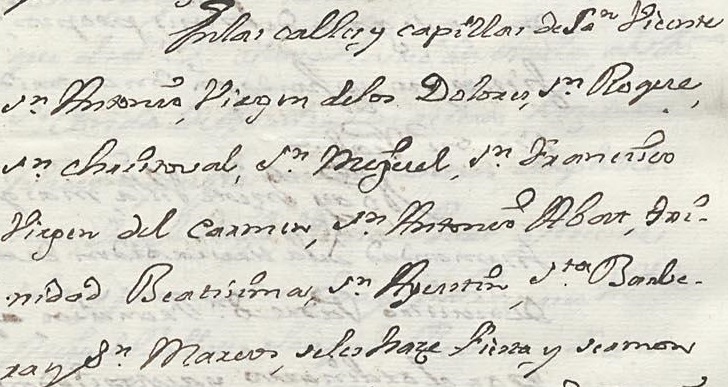 Enlas calles, y capillas de Sn. Vicente
Sn. Antonio, Virgen delos Dolores, Sn. Roque,
Sn. Christoval, Sn. Miguel, Sn. Francisco
Virgen del Carmen, Sn. Antonio Abat, Tri-
nidad Beatisima, Sn. Agustin, Sta. Barbe-
ra, y Sn. Marcos, seles haze fiesta, y sermon